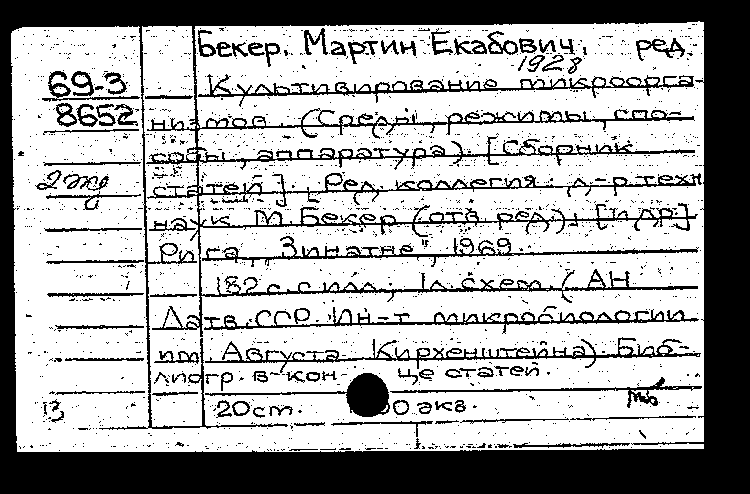 Бекер, Мартин Екабович, ред.
1928
69-3 Культивирование микроорга-
8652 низмов. (Среды, режимы, спо-
собы, аппаратура). [Сборник
2 жд статей]. Ред. коллегия: д-р техн
наук М. Бекер (отв. ред.), [и др.]
Рига, "Зинатне", 1969.
182 с. с илл.; 1 л. схем. (АН
Латв. ССР. Ин-т микробиологии
им. Августа Кирхенштейна). Биб-
лиогр. в кон- це статей.
13 20 см. 00 экз.